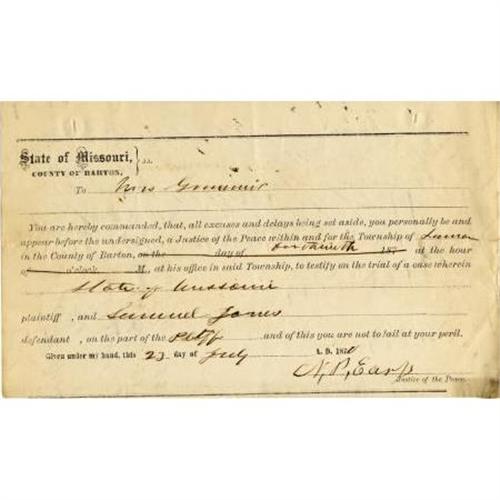 State of Missouri, } ss.
COUNTY OF BARTON,
To Mrs
You are hereby commanded, that, all excuses and delays being set aside, you personally be and
appear before the undersigned, a Justice of the Peace within and for the Township of Lamar
in the County of Barton, on the day of forthwith 187 at the hour
of o'clock M., at his office in said Township, to testify on the trial of a case wherein
State of Missouri
plaintiff, and Samuel Jones
defendant, on the part of the Pltff and of this you are not to fail at your peril.
Given under my hand, this 23 day of July A. D. 187
N. P. Earp
Justice of the Peace.